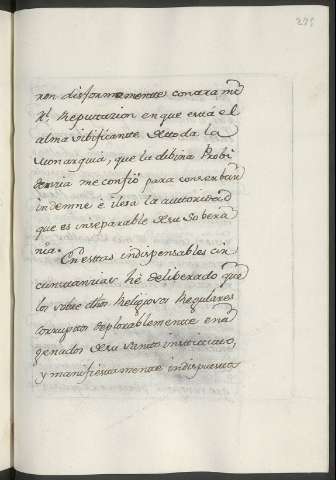 295
ron disformemente contra mi
Rl. Reputazion en que está el
alma vibificante de toda la
Monarquia, que la dibina Probi
denzia me confió para conserbar
indemne è ilesa la autoridad
que es inseparable de su Sobera
nia.
En estas indispensables cir
cunstanzias hé deliberado que
los sobre dhos Religiosos Regulares
corruptos deplorablemente ena
genados de su Santo instituto,
y manifiestamente indispuestos